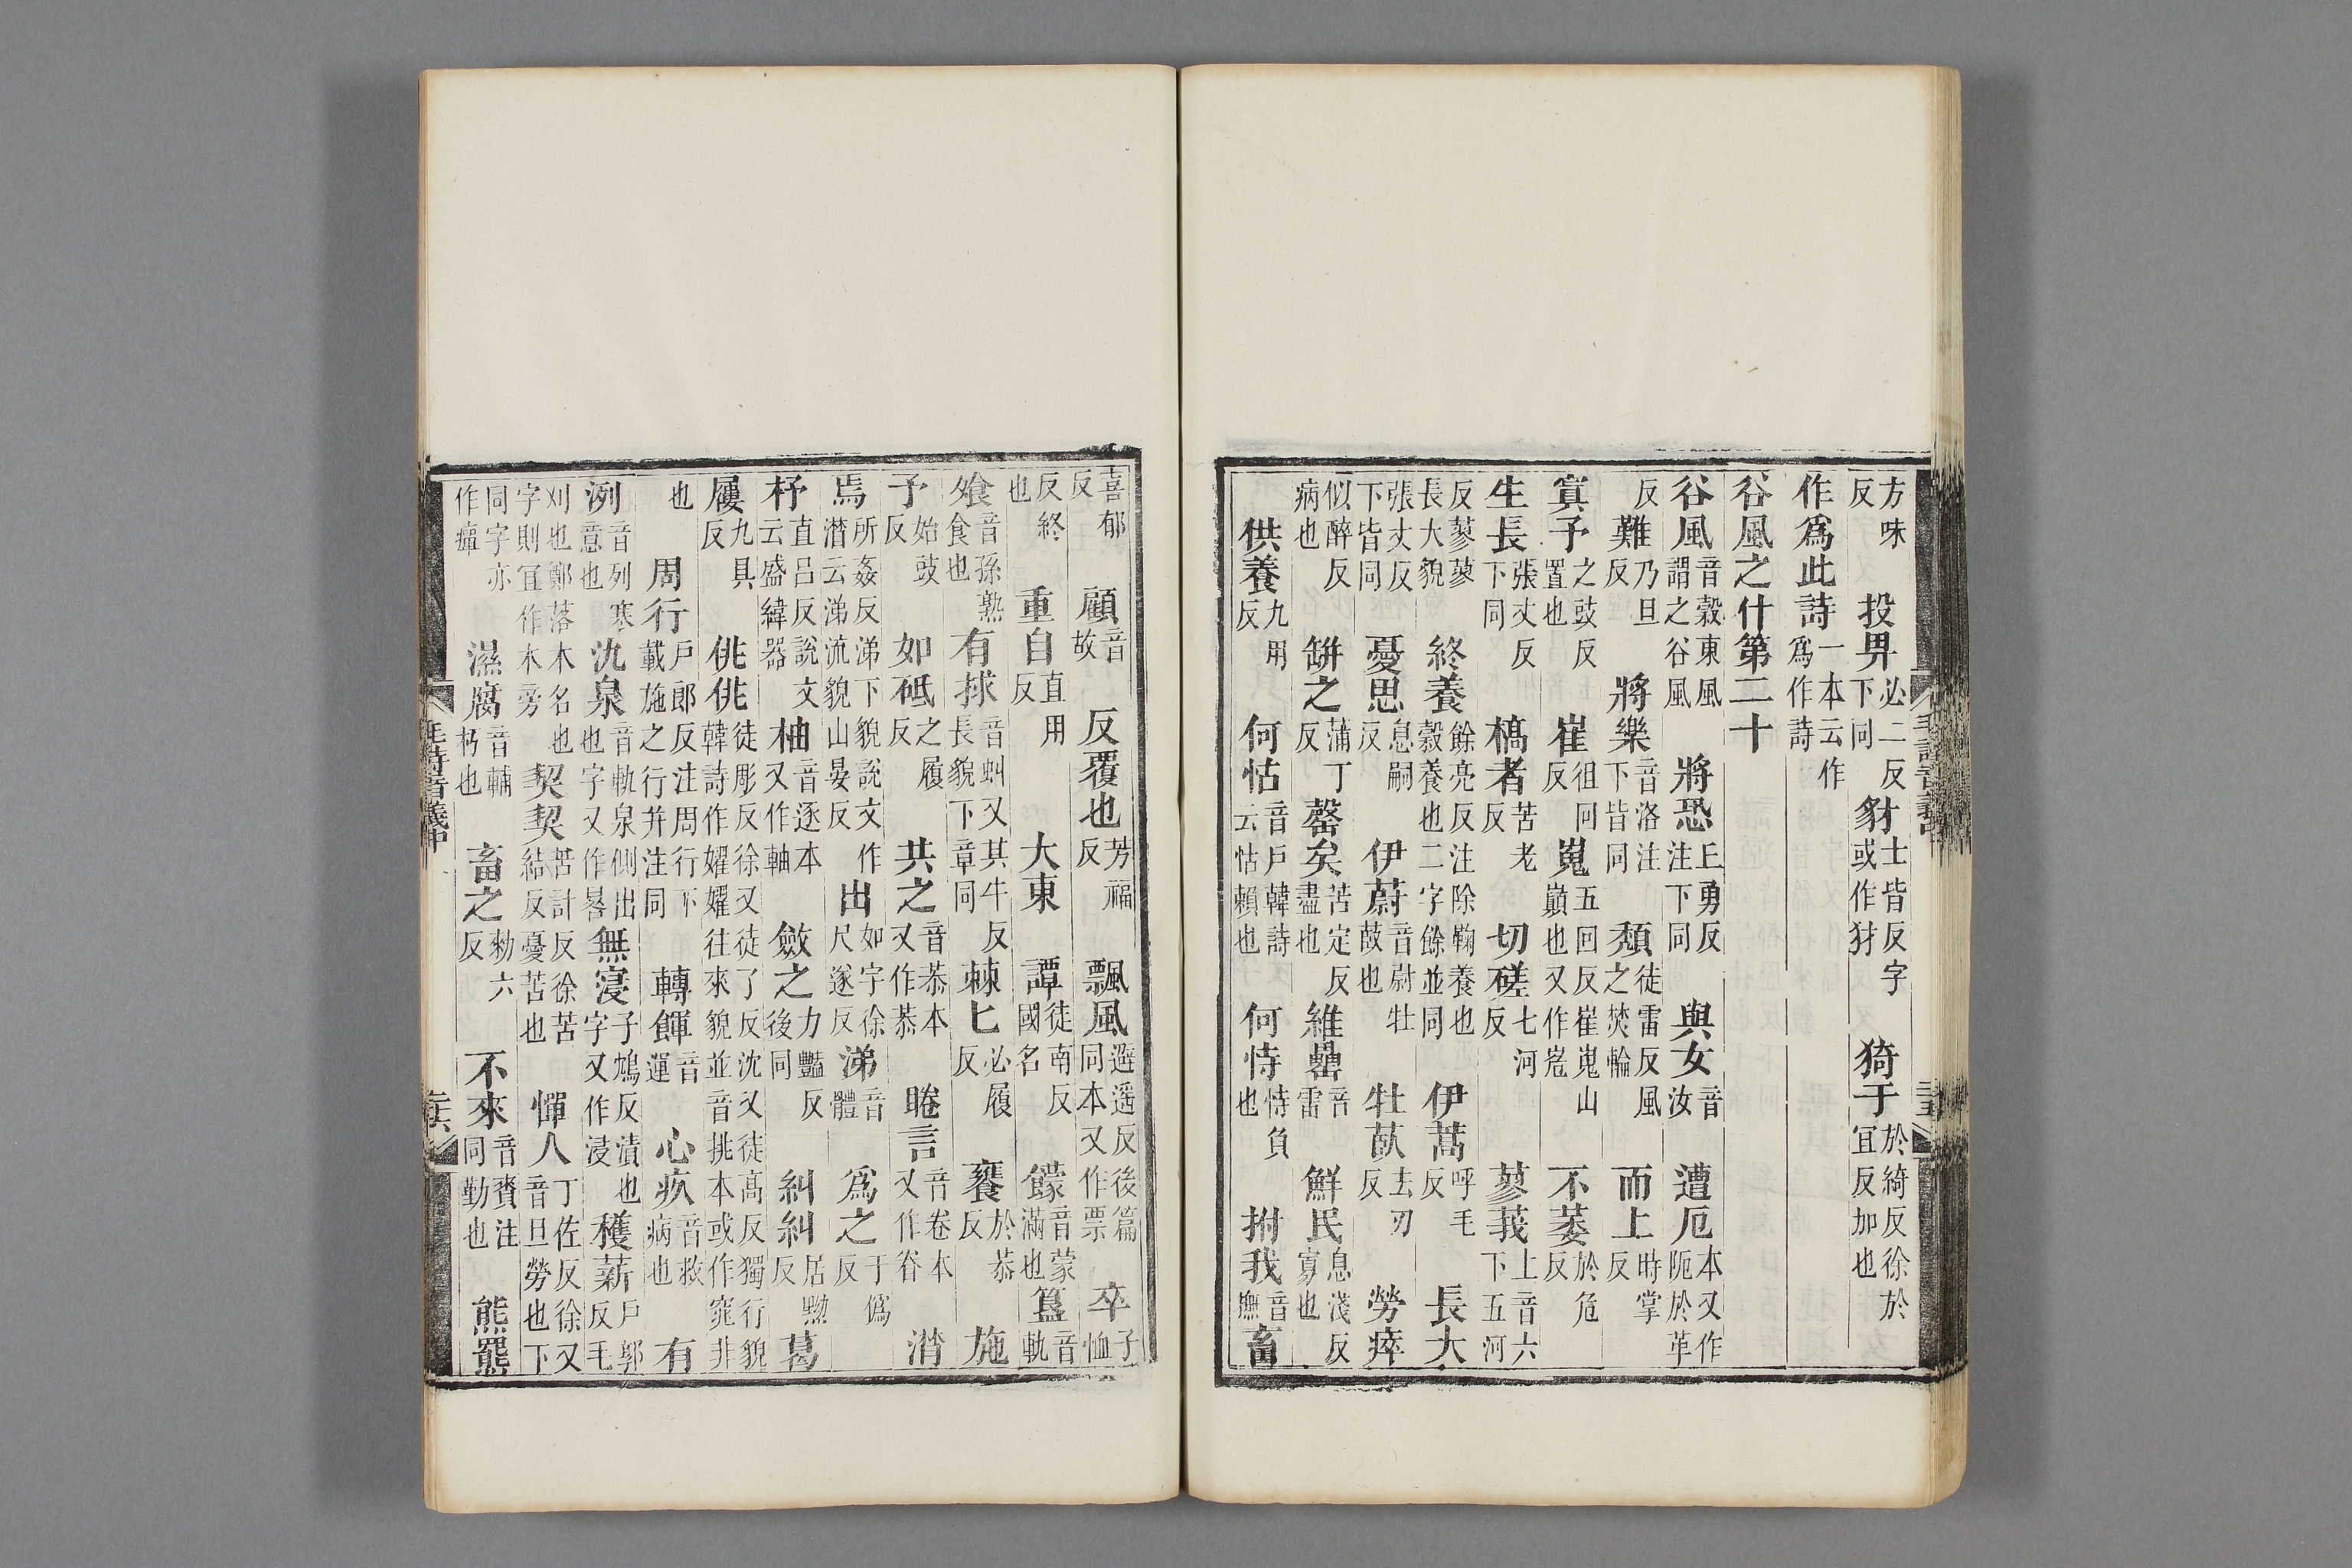 方味反 投畀必二反下同 豺士皆反字或作犲 猗于於綺反徐於宜反加也
作爲此詩一本云作爲作詩
谷風之什第二十
谷風音穀東風謂之谷風 將恐丘勇反注下同 與女音汝 遭厄本又作阨於革
反 難乃旦反 將樂音洛注下皆同 頹徒雷反風之焚輪 而上時掌反
寘予之豉反置也 崔徂回反 嵬五回反崔嵬山巔也又作峞 不萎於危反
生長張丈反下同 槁者苦老反 切磋七河反 蓼莪上音六下五河
反蓼蓼長大貌 終養餘亮反注除鞠養也穀養也二字餘並同 伊蒿呼毛反 長大
張丈反下皆同 憂思息嗣反 伊蔚音尉牡菣也 牡菣去刃反 勞瘁
似醉反病也 缾之蒲丁反 罄矣苦定反盡也 維罍音雷 鮮民息淺反寡也
供養九用反 何怙音戶韓詩云怙賴也 何恃恃負也 拊我音撫 畜
毛詩音義中
喜郁反 顧音故 反覆也芳福反 飄風避遥反後篇同本又作票 卒子恤
反終也 重自直用反 大東 譚徒南反國名 饛音蒙滿也 簋音軌
飧音孫熟食也 有捄音虯又其牛反長貌下章同 棘匕必履反 饔於恭反 施
予始豉反 如砥之履反 共之音恭本又作恭 睠言音卷本又作眷 潸
焉所姦反涕下貌說文作潛云涕流貌山晏反 出如字徐尺遂反 涕音體 爲之于僞反
杼直呂反說文云盛緯器 柚音逐本又作軸 斂之力豔反後同 糾糾居黝反 葛
屨九具反 佻佻徒彫反徐又徒了反沈又徒高反獨行貌韓詩作嬥嬥往來貌並音挑本或作窕非
也 周行戶郎反注周行下載施之行并注同 轉餫音運 心疚音救病也 有
洌音列寒意也 氿泉音軌泉側出也字又作晷 無寖子鴆反漬也字又作浸 穫薪戶郭反毛
刈也鄭落木名也字則宜作木旁 契契苦計反徐苦結反憂苦也 憚人丁佐反徐又音旦勞也下
同字亦作癉 濕腐音輔朽也 畜之勑六反 不來音賚注同勤也 熊羆
毛詩音義中